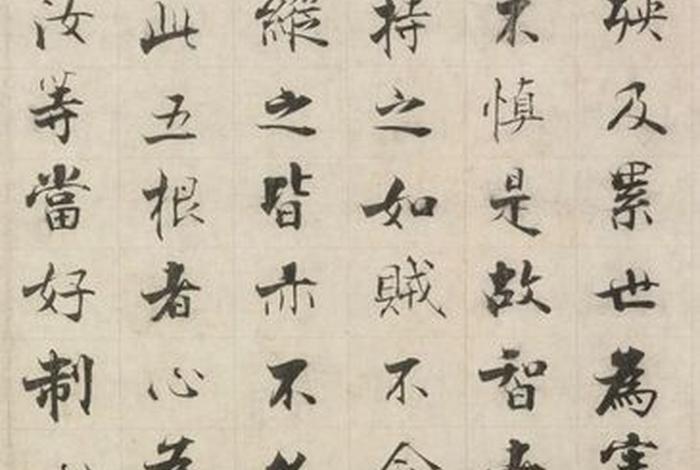 殃及累世為害
不慎是故智者
持之如賊不令
縱之皆亦不久
此五根者心為
汝等當好制